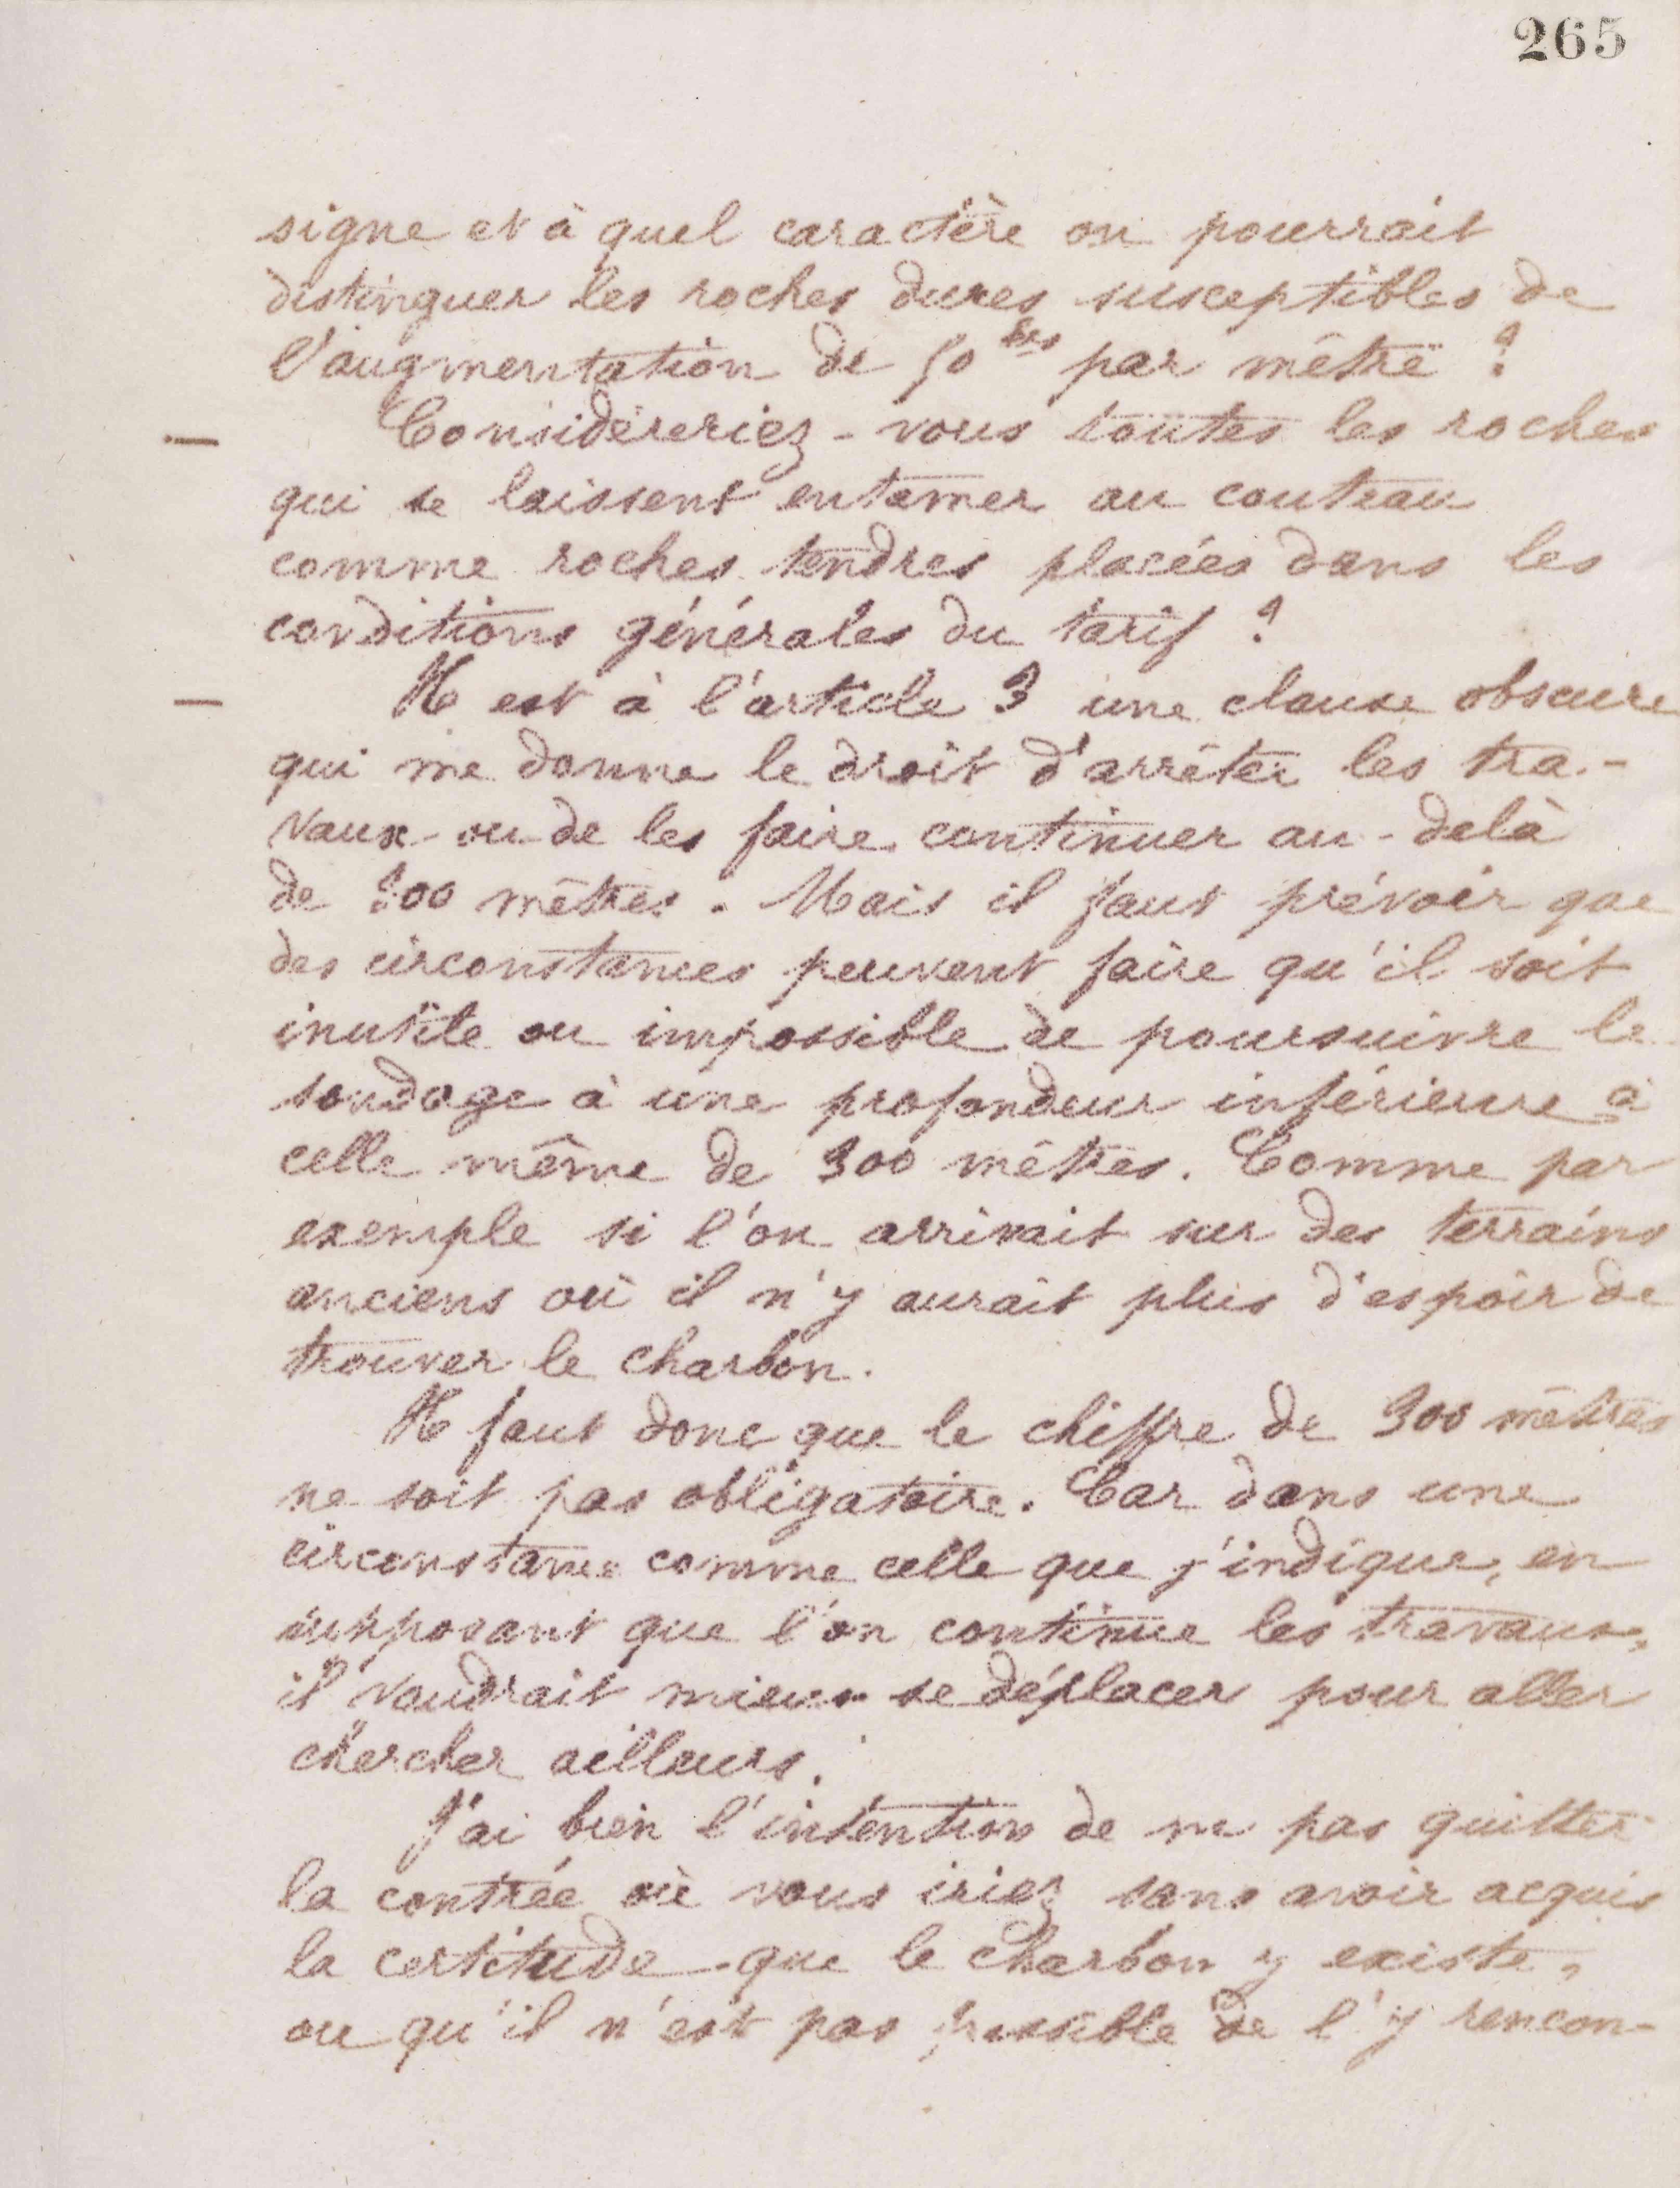 265
signe et à quel caractère on pourrait
distinguer les roches dures susceptibles de
l'augmentation de 50 frs par mètre ?
— Considéreriez-vous toutes les roches
qui se laissent entamer au couteau
comme roches tendres placées dans les
conditions générales du tarif ?
— Il est à l'article 3 une clause obscure
qui me donne le droit d'arrêter les tra-
vaux ou de les faire continuer au-delà
de 300 mètres. Mais il faut prévoir que
des circonstances peuvent faire qu'il soit
inutile ou impossible de poursuivre le
sondage à une profondeur inférieure à
celle même de 300 mètres. Comme par
exemple si l'on arrivait sur des terrains
anciens où il n'y aurait plus d'espoir de
trouver le charbon.
Il faut donc que le chiffre de 300 mètres
ne soit pas obligatoire. Car dans une
circonstance comme celle que j'indique, en
supposant que l'on continue les travaux,
il vaudrait mieux se déplacer pour aller
chercher ailleurs.
J'ai bien l'intention de ne pas quitter
la contrée où vous iriez sans avoir acquis
la certitude que le charbon y existe,
ou qu'il n'est pas possible de l'y rencon-